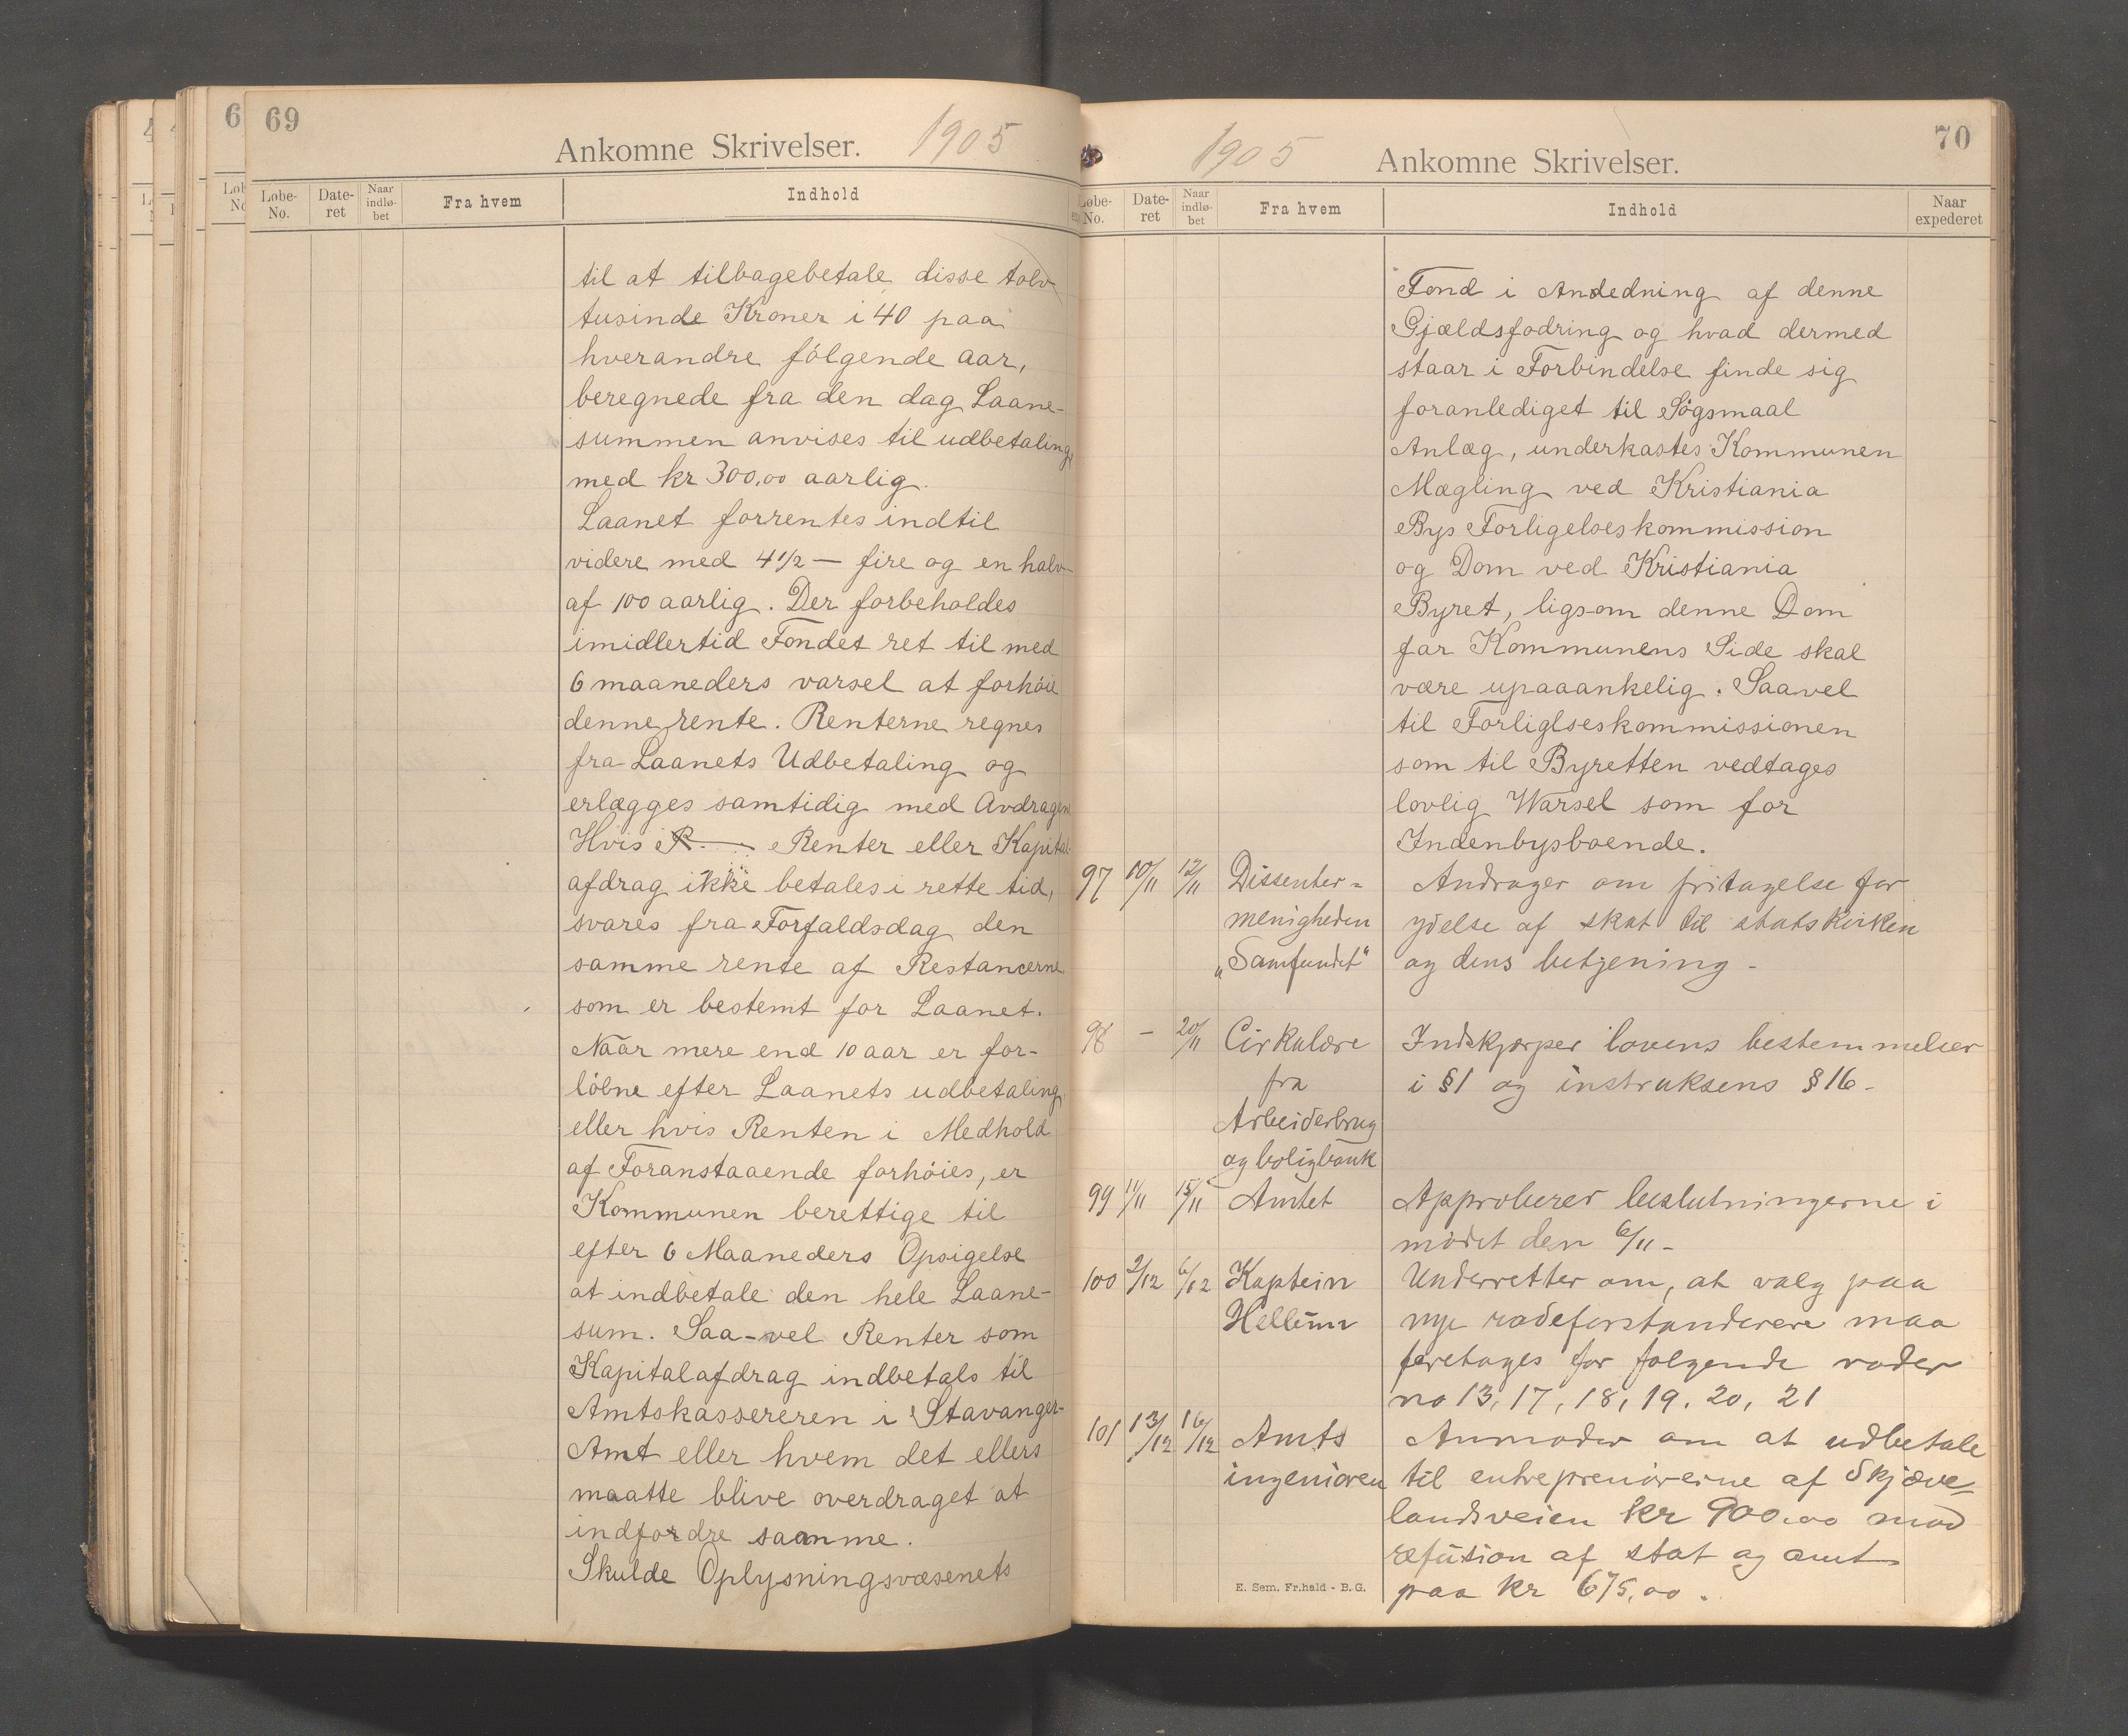 69
Ankomne Skrivelser. 1905
Løbe-No. Date-ret Naar indlø-bet Fra hvem Indhold
til at tilbagebetale disse tolv
tusinde Kroner i 40 paa
hverandre følgende aar,
beregnede fra den dag Laane-
summen anvises til udbetaling,
med kr 300,00 aarlig.
Laanet forrentes indtil
videre med 4 1/2 — fire og en halv —
af 100 aarlig. Der forbeholdes
imidlertid Fondet ret til med
6 maaneders varsel at forhöie
denne rente. Renterne regnes
fra Laanets Udbetaling og
erlægges samtidig med Avdragene
Hvis R Renter eller Kapital-
afdrag ikke betales i rette tid,
svares fra Forfaldsdag den
samme rente af Restancerne
som er bestemt for Laanet.
Naar mere end 10 aar er for-
löbne efter Laanets udbetaling,
eller hvis Renten i Medhold
af Foranstaaende forhöies, er
Kommunen berettige til
efter 6 Maaneders Opsigelse
at indbetale den hele Laane-
sum. Saa-vel Renter som
Kapitalafdrag indbetals til
Amtskassereren i Stavanger-
Amt eller hvem det ellers
maatte blive overdraget at
indfordre samme.
Skulde Oplysningsvæsenets
70
1905 Ankomne Skrivelser.
Løbe-No. Date-ret Naar indlø-bet Fra hvem Indhold Naar expederet
Fond i Andedning af denne
Gjældsfodring og hvad dermed
staar i Forbindelse finde sig
foranlediget til Søgsmaal
Anlæg, underkastes Kommunen
Mægling ved Kristiania
Bys Forligelseskommission
og Dom ved Kristiania
Byret, ligsom denne Dom
for Kommunens Side skal
være upaaankelig. Saavel
til Forliglseskommissionen
som til Byretten vedtages
lovlig Warsel som for
Indenbysboende.
97 10/11 12/11 Dissenter= Andrager om fritagelse for
menigheden ydelse af skat til statskirken
„Samfundet" og dens betjening -
98 - 20/11 Cirkulære Indskjærper lovens bestemmelser
fra i §1 og instruksens §16 -
Arbeiderbrug
og boligbank
99 11/11 15/11 Amtet Approberer beslutningerne i
mødet den 6/11 -
100 2/12 6/12 Kaptein Underretter om, at valg paa
Hellum nye rodeforstandere maa
foretages for følgende roder
no 13, 17, 18, 19. 20, 21
101 13/12 16/12 Amts Anmoder om at udbetale
ingeniøren til entreprenörerne af Skjæve-
landsveien kr 900.00 mod
refusion af stat og amt
paa kr 675,00.
E. Sem. Fr.hald - B.G.